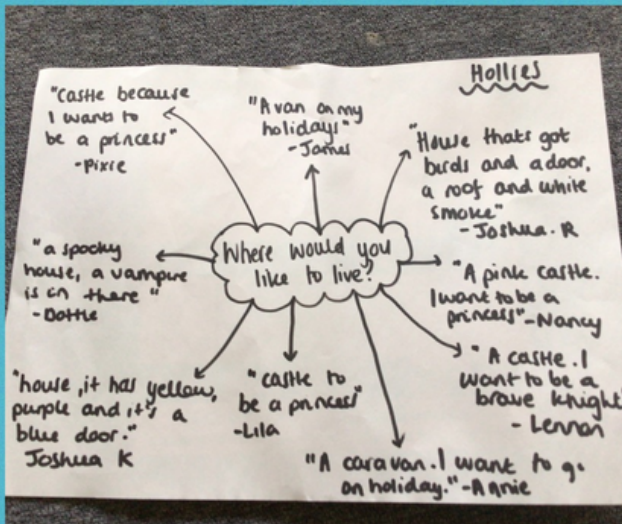 Hollies
"Castle because
I want to
be a princess"
-Pixie
"A van on my
holidays"
-James
"House thats got
birds and a door,
a roof and white
smoke"
-Joshua.R
Where would you
like to live?
"a spooky
house, a vampire
is in there"
-Dottie
"A pink castle.
I want to be a
princess"-Nancy
"A castle. I
want to be a
brave knight"
-Lennon
"house, it has yellow,
purple and it's a
blue door."
Joshua K
"castle to
be a princess"
-Lila
"A caravan. I want to go
on holiday."-Annie